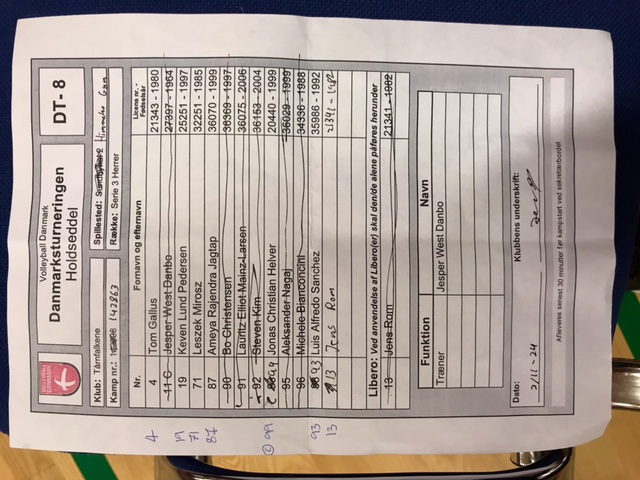 Volleyball Danmark
Danmarksturneringen
Holdseddel
DT- 8
VOLLEYBALL
DANMARK
Klub: Tårnfalkene
Spillested:
Kamp nr.: 142863
Række: Serie 3 Herrer
Nr. Fornavn og efternavn Licens nr. - Fødselsår
4 4 Tom Gallus 21343 - 1980
11 C Jesper West Danbo 27397 - 1964
19 19 Keven Lund Pedersen 25251 - 1997
71 71 Leszek Mitrosz 32251 - 1985
87 87 Ameya Rajendra Jagtap 36070 - 1999
90 Bo Christensen 36369 - 1997
91 Lauritz Elliot Mainz-Larsen 36075 - 2006
92 Steven Kim 36153 - 2004
C 99 c 99 Jonas Christian Helver 20440 - 1999
95 Aleksander Nagaj 36029 - 1999
96 Michele Bianconcini 34336 - 1988
93 93 Luis Alfredo Sanchez 35986 - 1992
13 13 Jens Rom 21341 - 1982
Libero: Ved anvendelse af Libero(er) skal den/de alene påføres herunder
13 Jens Rom 21341 - 1982
Funktion Navn
Træner Jesper West Danbo
Dato: Klubbens underskrift:
2/11-24
Afleveres senest 30 minutter før kampstart ved sekretærbordet